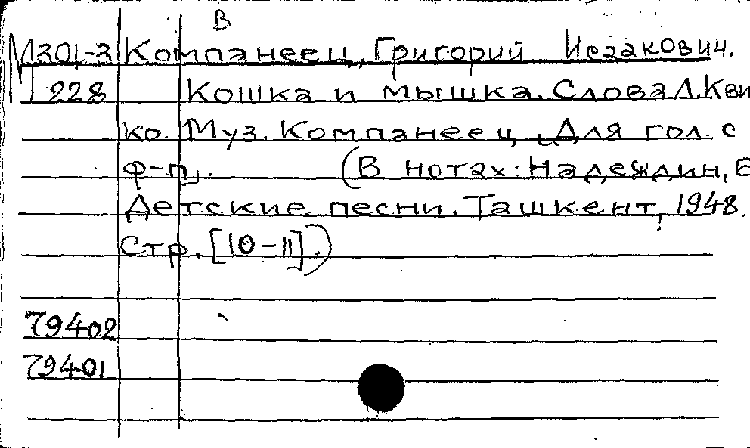 В
М301-3 Компанеец, Григорий Исаакович.
1228 Кошка и мышка. Слова Л. Кви
ко. Муз. Компанеец. Для гол с
ф-п.. (В нотах: Надеждин, Б
Детские песни. Ташкент, 1948.
Стр. [10-11].)
79402
79401